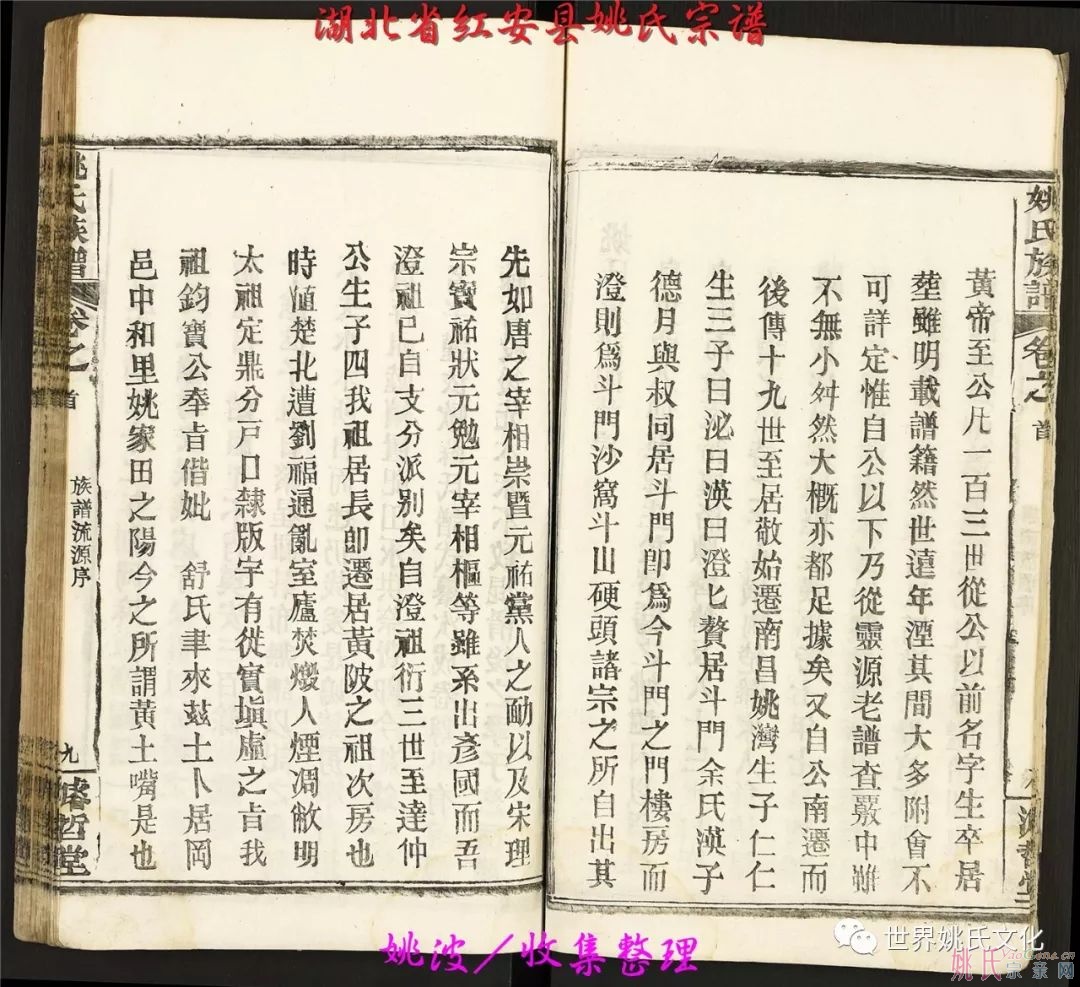 湖北省红安县姚氏宗谱
姚氏族譜
卷之
首
黃帝至公凡一百三世從公以前名字生卒居
塟雖明載譜籍然世遠年湮其間大多附會不
可詳定惟自公以下乃從靈源老譜查覈中雖
不無小舛然大概亦都足據矣又自公南遷而
後傳十九世至居敬始遷南昌姚灣生子仁仁
生三子曰泌曰渶曰澄匕贅居斗門余氏渶子
德月與叔同居斗門卽爲今斗門之門樓房而
澄則爲斗門沙窩斗山硬頭諸宗之所自出其
先如唐之宰相崇暨元祐黨人之勔以及宋理
宗寶祐狀元勉元宰相樞等雖系出彥國而吾
澄祖已自支分派別矣自澄祖衍三世至達仲
公生子四我祖居長卽遷居黃陂之祖次房也
時值楚北遭劉福通亂室廬焚燬人煙凋敝明
太祖定鼎分戸口隸版宇有從實塡虛之㫖我
祖鈞寶公奉㫖偕妣 舒氏聿來兹土卜居岡
邑中和里姚家田之陽今之所謂黃土嘴是也
姚氏族譜
卷之
首
族譜流源序
九
濬哲堂
姚波／收集整理
世界姚氏文化
姚氏宗亲网